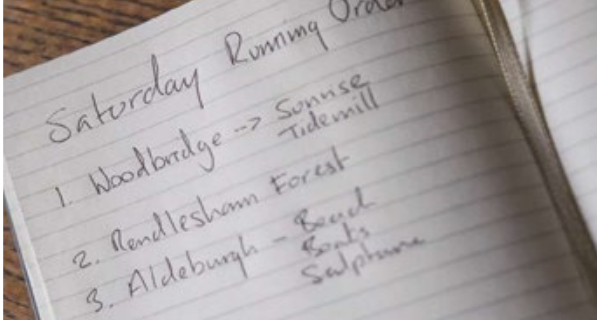 Saturday Running Order
1. Woodbridge --> Sunrise
Tidemill
2. Rendlesham Forest
3. Aldeburgh - Beach
Boats
Sculpture